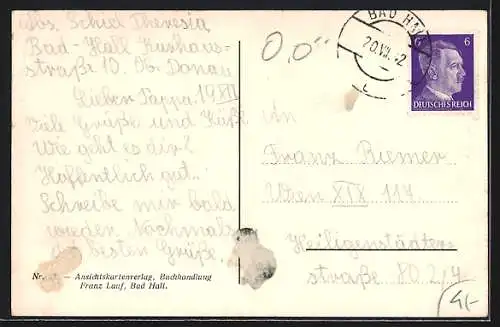 Abs. Schiel Theresia
Bad-Hall Kurhaus-
straße 10. Ob. Donau
Lieber Pappa.
Viele Grüße und Küße
Wie geht es dir?
Hoffentlich gut.
Schreibe mir bald
wieder. Nochmals
die besten Grüße.
Nr. — Ansichtskartenverlag, Buchhandlung
Franz Lauf, Bad Hall.
0,0"
BAD HALL
20.VII. 2
6 6
DEUTSCHES REICH
An
Franz Riemer
Wien XIX 117
Heiligenstädter-
straße 80.2/4
4,-